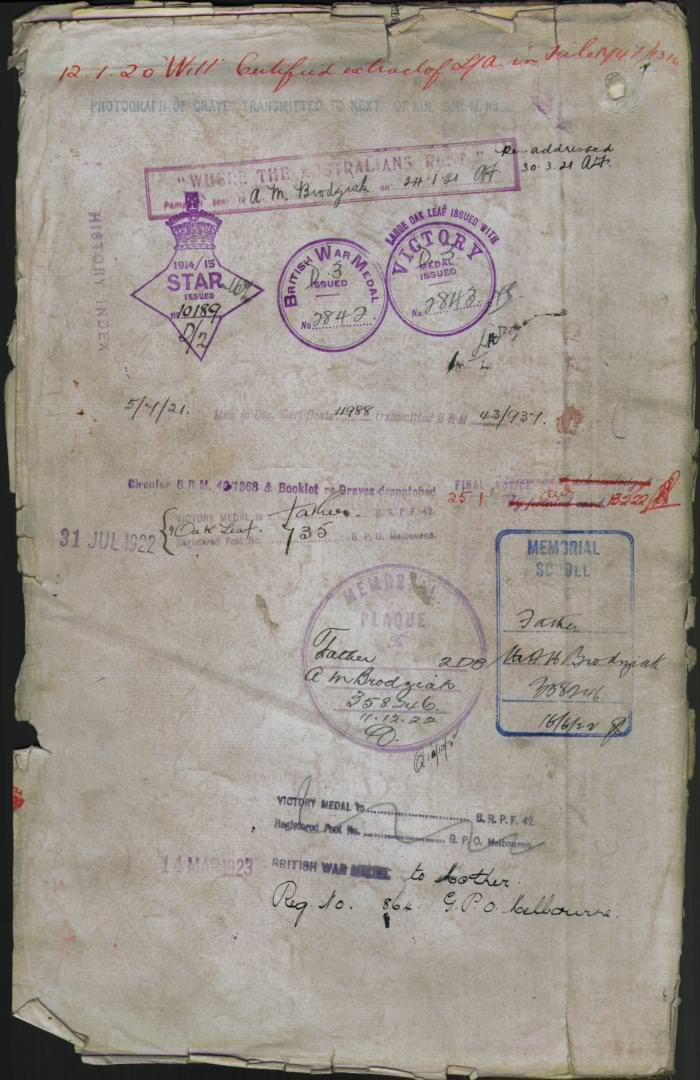 12.1.20 "Will" Certified extract of L/A. in File
PHOTOGRAPH OF GRAVE TRANSMITTED TO NEXT OF KIN B.R.M. No.
Re-addressed
30.3.21
"WHERE THE AUSTRALIANS REST"
Pamphlet sent to A. M. Brodziak on 24.1.21
HISTORY INDEX
1914/15
STAR
ISSUED
No 10189
D/2
BRITISH WAR MEDAL
D.3
ISSUED
No 2842
LARGE OAK LEAF ISSUED WITH
VICTORY
D.3
MEDAL
ISSUED
No. 2843
5/7/21. Men to Dec. Certificate 11988 transmitted B R M 43/937.
Circular B.R.M. 42/1368 & Booklet re Graves despatched
FINAL
25.1
13222
31 JUL 1922
VICTORY MEDAL to Father. B.R.P.F. 42.
& Oak Leaf.
Registered Post No. 735 G.P.O. Melbourne.
MEMORIAL
PLAQUE
To
Father 2DB
A M Brodziak
358246.
11.12.22
MEMORIAL
SCROLL
Father
Brodziak
358246
16/6/22
VICTORY MEDAL to B.R.P.F. 42.
Registered Post No. G.P.O. Melbourne
14 MAR 1923
BRITISH WAR MEDAL to
Reg. No. 864 G.P.O. Melbourne.